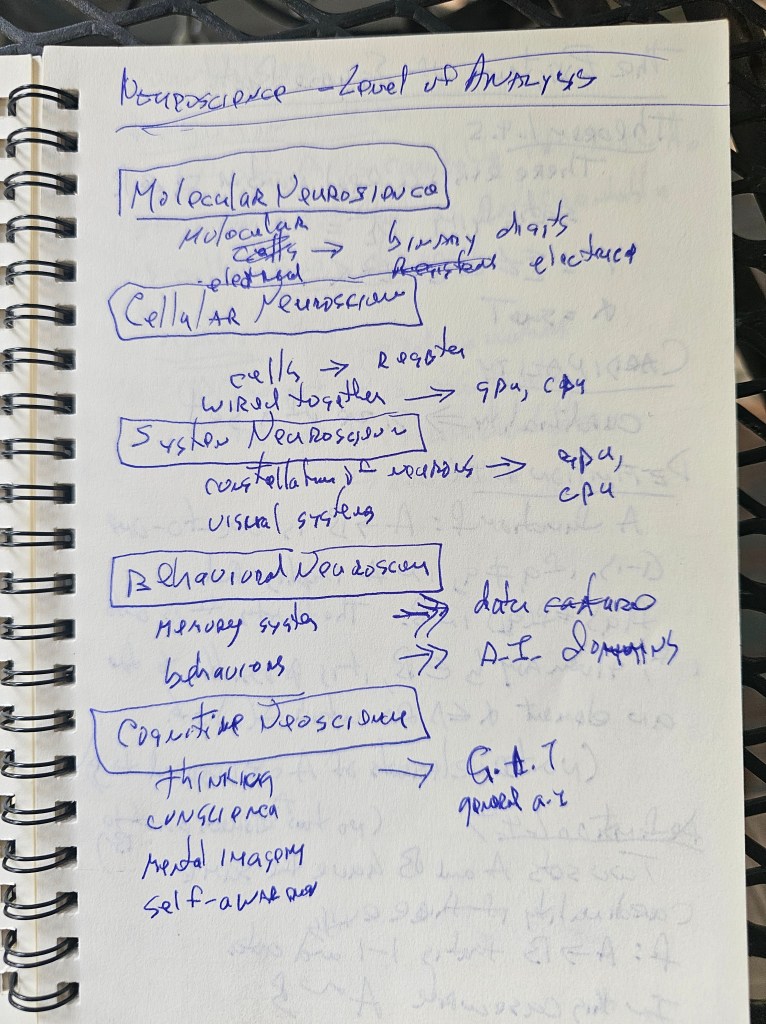 Neuroscience - Level of Analysis
Molecular Neurosience
Molecular
cells → binary digits
Registers electrica
Cellular Neuroscien
cells → Register
wired together → gpu, cpu
System Neuroscienc
constellation of neurons → gpu,
cpu
visual systems
Behavioral Neuroscien
Memory system → data
behaviors → A.I. Domains
Cognitive Neoscience
thinking → G.A.I
general a.I
Mental Imagery
self-awar